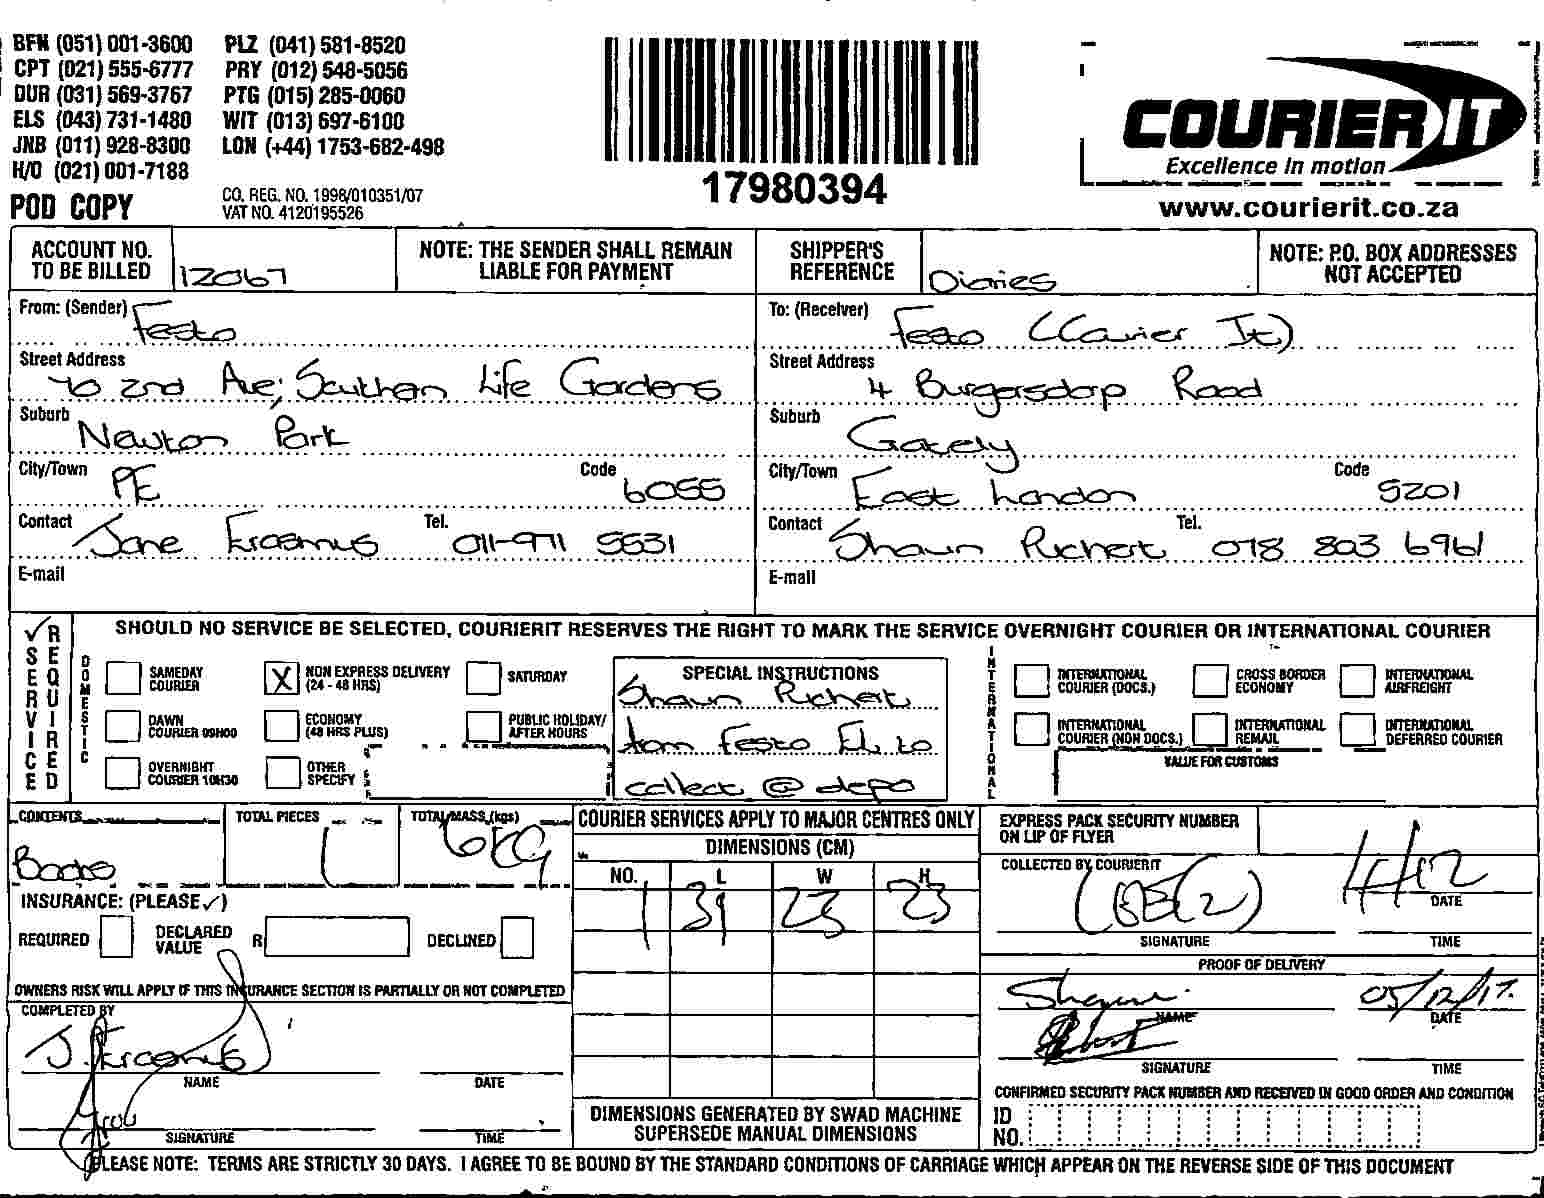 BFN (051) 001-3600 PLZ (041) 581-8520
CPT (021) 555-6777 PRY (012) 548-5056
DUR (031) 569-3767 PTG (015) 285-0060
ELS (043) 731-1480 WIT (013) 697-6100
JNB (011) 928-8300 LON (+44) 1753-682-498
H/O (021) 001-7188
POD COPY
CO. REG. NO. 1998/010351/07
VAT NO. 4120195526
17980394
COURIER IT
Excellence in motion
www.courierit.co.za
ACCOUNT NO. TO BE BILLED 12067
NOTE: THE SENDER SHALL REMAIN LIABLE FOR PAYMENT
SHIPPER'S REFERENCE Diaries
NOTE: P.O. BOX ADDRESSES NOT ACCEPTED
From: (Sender) Festo
Street Address
70 2nd Ave, Southern Life Gardens
Suburb Newton Park
City/Town PE Code 6055
Contact Jane Erasmus Tel. 011-971 5531
E-mail
To: (Receiver) Festo (Courier It)
Street Address
4 Burgersdorp Road
Suburb Gately
City/Town East London Code 5201
Contact Shaun Richert Tel. 078 803 6961
E-mail
✓ SERVICE REQUIRED
SHOULD NO SERVICE BE SELECTED, COURIERIT RESERVES THE RIGHT TO MARK THE SERVICE OVERNIGHT COURIER OR INTERNATIONAL COURIER
DOMESTIC
SAMEDAY COURIER
X NON EXPRESS DELIVERY (24 - 48 HRS)
SATURDAY
DAWN COURIER 09H00
ECONOMY (48 HRS PLUS)
PUBLIC HOLIDAY/ AFTER HOURS
OVERNIGHT COURIER 10H30
OTHER SPECIFY
SPECIAL INSTRUCTIONS
Shaun Richert
from Festo EL to
collect @ depo
INTERNATIONAL
INTERNATIONAL COURIER (DOCS.)
CROSS BORDER ECONOMY
INTERNATIONAL AIRFREIGHT
INTERNATIONAL COURIER (NON DOCS.)
INTERNATIONAL REMAIL
INTERNATIONAL DEFERRED COURIER
VALUE FOR CUSTOMS
CONTENTS Books
TOTAL PIECES 1
TOTAL MASS (kgs) 6KG
INSURANCE: (PLEASE ✓)
REQUIRED DECLARED VALUE R DECLINED
OWNERS RISK WILL APPLY IF THIS INSURANCE SECTION IS PARTIALLY OR NOT COMPLETED
COMPLETED BY
J. Erasmus
NAME DATE
SIGNATURE TIME
COURIER SERVICES APPLY TO MAJOR CENTRES ONLY
DIMENSIONS (CM)
NO. L W H
1 31 23 23
DIMENSIONS GENERATED BY SWAD MACHINE
SUPERSEDE MANUAL DIMENSIONS
EXPRESS PACK SECURITY NUMBER ON LIP OF FLYER
COLLECTED BY COURIERIT
4/12
DATE
SIGNATURE TIME
PROOF OF DELIVERY
05/12/17.
NAME DATE
SIGNATURE TIME
CONFIRMED SECURITY PACK NUMBER AND RECEIVED IN GOOD ORDER AND CONDITION
ID NO.
PLEASE NOTE: TERMS ARE STRICTLY 30 DAYS. I AGREE TO BE BOUND BY THE STANDARD CONDITIONS OF CARRIAGE WHICH APPEAR ON THE REVERSE SIDE OF THIS DOCUMENT